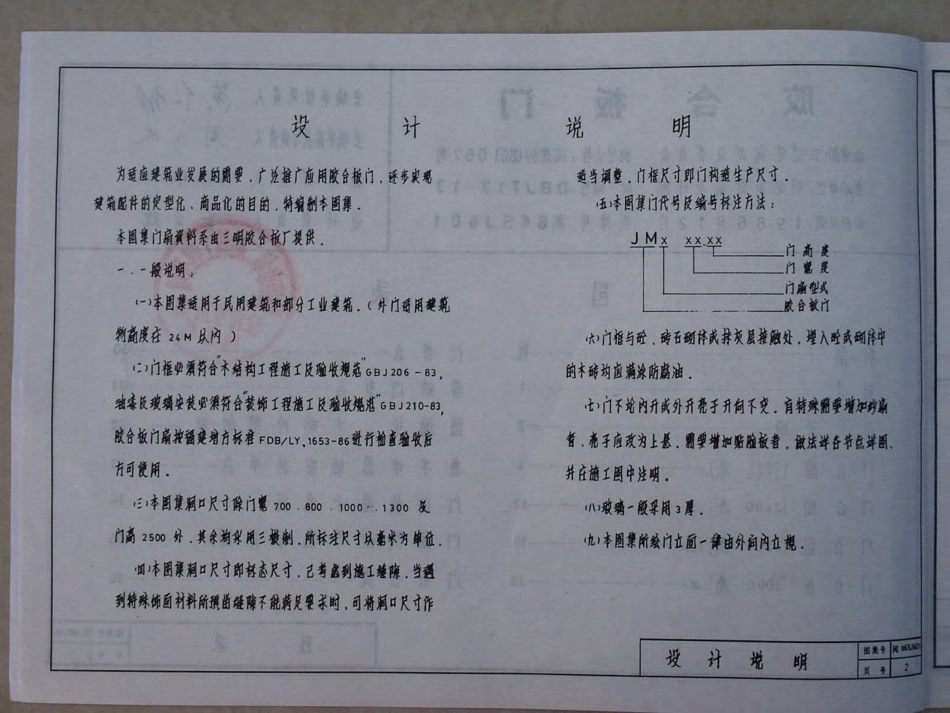 设 计 说 明
为适应建筑业发展的需要，广泛推广应用胶合板门，逐步实现
建筑配件的定型化、商品化的目的，特编制本图集．
本图集门扇资料系由三明胶合板厂提供．
一．一般说明：
(一)本图集适用于民用建筑和部分工业建筑．（外门适用建筑
物高度在 24M 以内）
(二)门框必须符合“木结构工程施工及验收规范”GBJ206-83，
油漆及玻璃安装必须符合“装饰工程施工及验收规范”GBJ210-83，
胶合板门扇按福建地方标准 FDB/LY，1653-86进行检查验收后
方可使用．
(三)本图集洞口尺寸除门宽 700．800．1000．1300 及
门高 2500 外，其余均采用三模制．所标注尺寸以毫米为单位．
(四)本图集洞口尺寸即标志尺寸，已考虑到施工缝隙，当遇
到特殊饰面材料所预留缝隙不能满足要求时，可将洞口尺寸作
适当调整，门框尺寸即门构造生产尺寸．
(五)本图集门代号及编号标注方法：
JMx xx xx
门 高 度
门 宽 度
门扇型式
胶合板门
(六)门框与砼，砖石砌体或抹灰层接触处，埋入砼或砌体中
的木砖均应满涂防腐油．
(七)门不论内开或外开亮子开向不变．有特殊需要增加纱扇
者、亮子应改为上悬．需要增加贴脸板者，做法详各节点详图．
并在施工图中注明．
(八)玻璃一般采用 3 厚．
(九)本图集所绘门立面一律由外向内立视．
设 计 说 明
图集号 闽 86SJ601
页 号 2